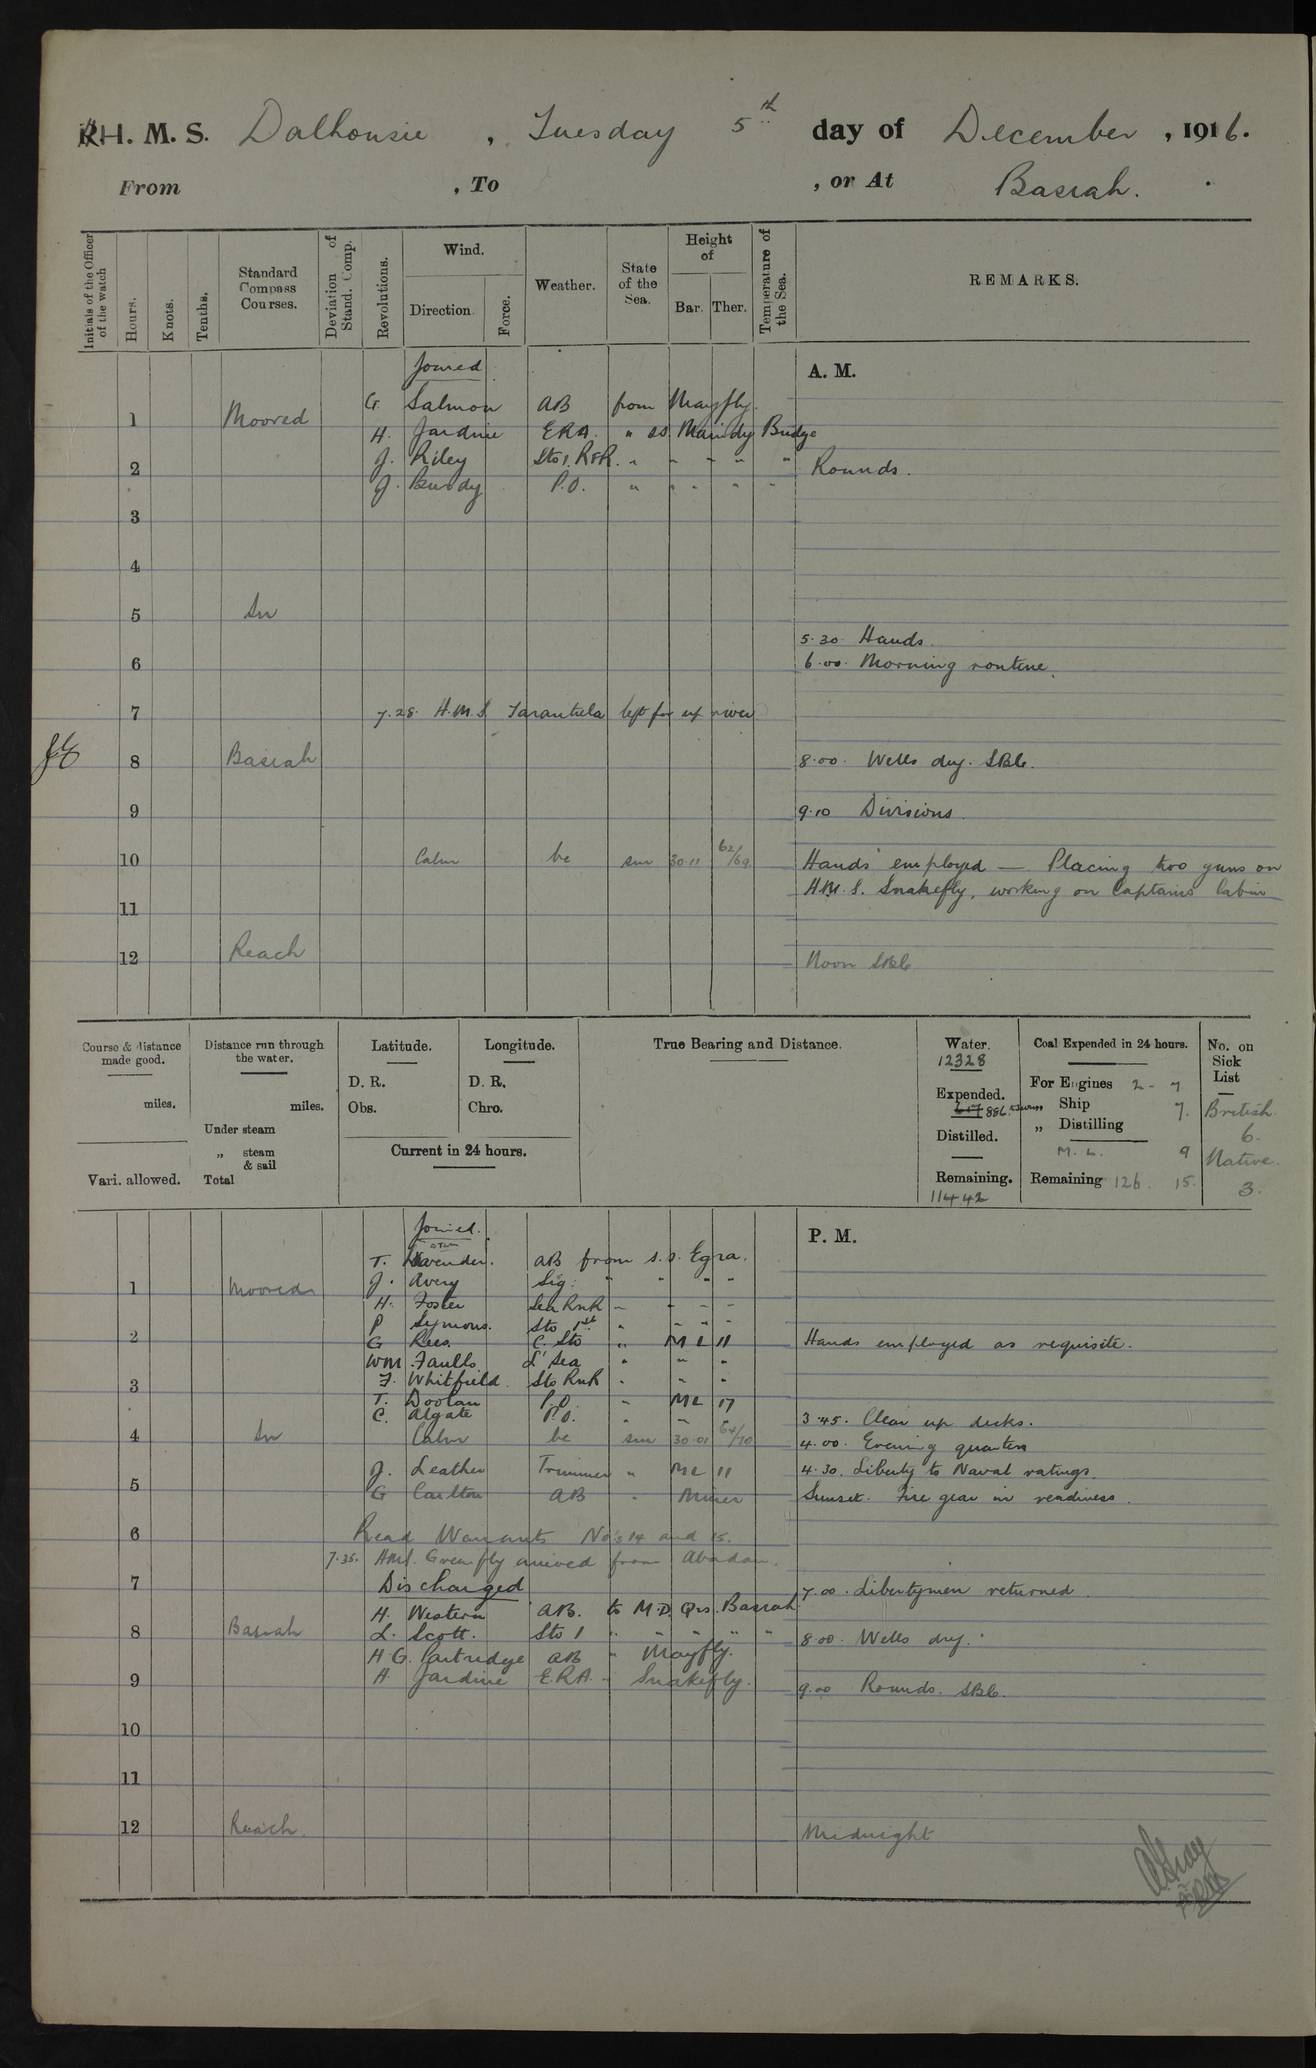 H. M. S. Dalhousie, Tuesday 5th day of December, 1916.
From , To , or At Basrah.
Initials of the Officer of the watch
Hours.
Knots.
Tenths.
Standard Compass Courses.
Deviation of Stand. Comp.
Revolutions.
Wind.
Direction.
Force.
Weather.
State of the Sea.
Height of
Bar. Ther.
Temperature of the Sea.
REMARKS.
Joined
A. M.
G. Salmon AB from Mayfly.
1 Moored
H. Jardine ERA. " ss. Maindy Bridge
J. Riley Sto 1. RFR. " " " " "
2 Rounds.
J. Bundy P.O. " " " " "
3
4
5 In
5.30 Hands.
6 6.00. Morning routine.
7 7.28. H.M.S. Tarantula left for up river
8 Basrah 8.00. Wells dry. SBC.
9 9.10 Divisions.
10 Calm bc sm 30.11 62/69 Hands employed — Placing two guns on
H.M.S. Snakefly, working on Captains Cabin
11
12 Reach Noon SBC
Course & distance made good.
miles.
Vari. allowed.
Distance run through the water.
miles.
Under steam
„ steam & sail
Total
Latitude.
D. R.
Obs.
Longitude.
D. R.
Chro.
Current in 24 hours.
True Bearing and Distance.
Water.
12328
Expended.
886
Distilled.
Remaining.
11442
Coal Expended in 24 hours.
For Engines 2 - 7
„ Ship 7.
„ Distilling
M. L. 9
Remaining 126. 15.
No. on Sick List
British
6.
Native.
3.
Joined.
P. M.
T. Lavender. AB from s.s. Egra.
J. Avery Sig: " " " "
1 Moored
H. Foster Sea RNR " " " "
P Symons. Sto 1st " " " "
2 G Rees. C. Sto " ML 11 Hands employed as requisite.
WM Faulls L' Sea " " "
F. Whitfield Sto RNR " " "
3
T. Doolan P.O. " ML 17
C. Algate P.O. " " 3.45. Clear up decks.
4 In Calm bc sm 30.01 64/70 4.00. Evening quarters
J. Leather Trimmer " ML 11 4.30. Liberty to Naval ratings.
5 G Carlton AB " Miner Sunset. Fire gear in readiness.
6 Read Warrants No's 14 and 15.
7.35. HMS. Greenfly arrived from Abadan.
7 Discharged 7.00. Libertymen returned
H. Western AB. to M.D. Qrs. Basrah
8 Basrah L. Scott. Sto 1 " " " " " 8.00. Wells dry.
H G. Partridge AB " Mayfly.
9 H. Jardine E.R.A. " Snakefly. 9.00 Rounds. SBC.
10
11
12 Reach. Midnight